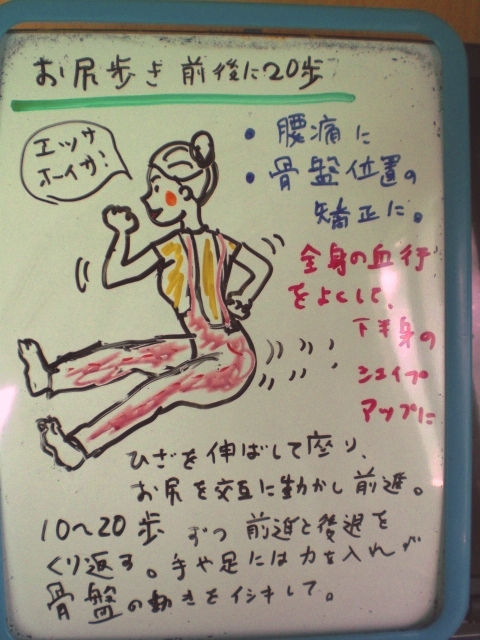 お尻歩き 前後に20歩
エッサ
ホーイサ!
・腰痛に
・骨盤位置の
矯正に。
全身の血行
をよくして、
下半身の
シェイプ
アップに
ひざを伸ばして座り、
お尻を交互に動かし前進。
10〜20歩ずつ前進と後退を
くり返す。手や足には力を入れず
骨盤の動きをイシキして。